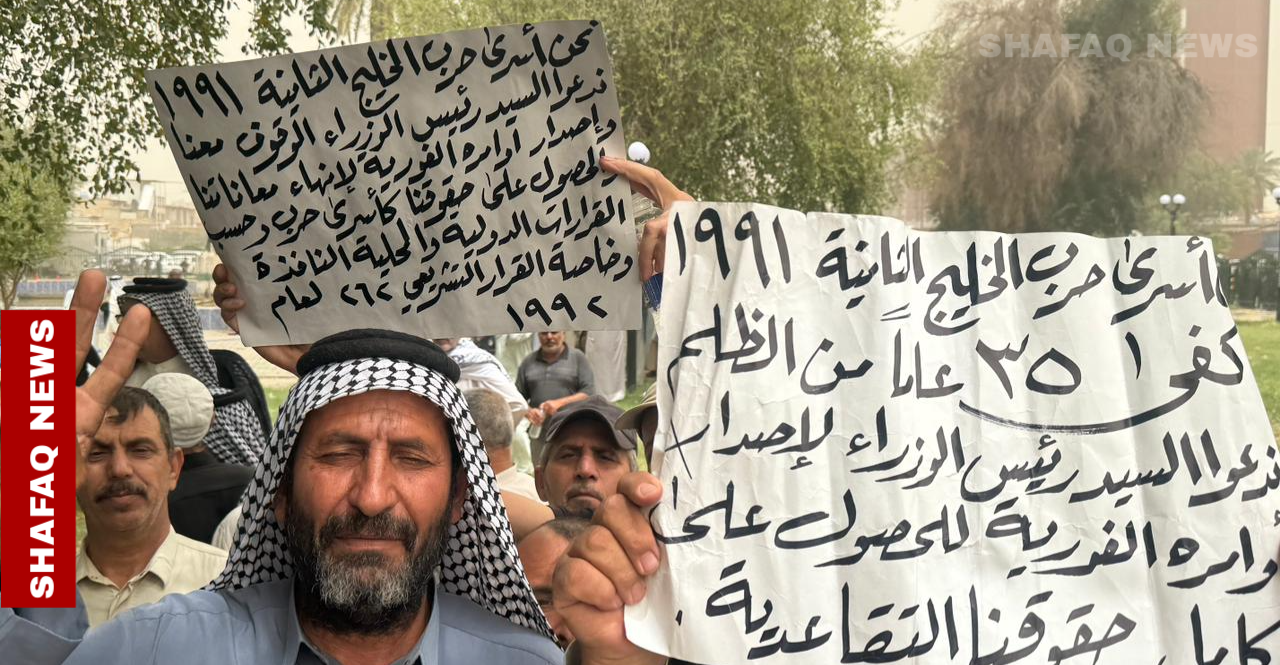 نحن أسرى حرب الخليج الثانية ١٩٩١
ندعوا السيد رئيس الوزراء الوقوف معنا
وإصدار أوامره الفورية لإنهاء معاناتنا
والحصول على حقوقنا كأسرى حرب وحسب
القرارات الدولية والمحلية النافذة
وخاصة القرار التشريعي ٢٦٢ لعام
١٩٩٢
أسرى حرب الخليج الثانية ١٩٩١
كفى ٣٥ عاماً من الظلم
ندعوا السيد رئيس الوزراء لإصدار
أوامره الفورية للحصول على
كامل حقوقنا التقاعدية .
SHAFAQ NEWS
SHAFAQ NEWS